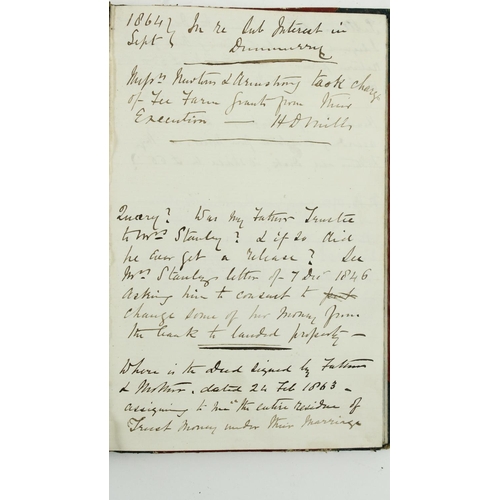 1864 } In re Sub Interest in
Sept } Dunmurry
Messrs Newton & Armstrong took charge
of Fee Farm Grants from their
Execution — H D Mills
Quœry? Was my Father Trustee
to Mrs Stanley? & if so did
he ever get a release? See
Mrs Stanleys letter of 7 Decr 1846
asking him to consent to
change some of her money from
the bank to landed property —
Where is the Deed signed by Father
& Mother, dated 24 Feb 1863 -
assigning to me the entire residue of
Trust Money under their Marriage